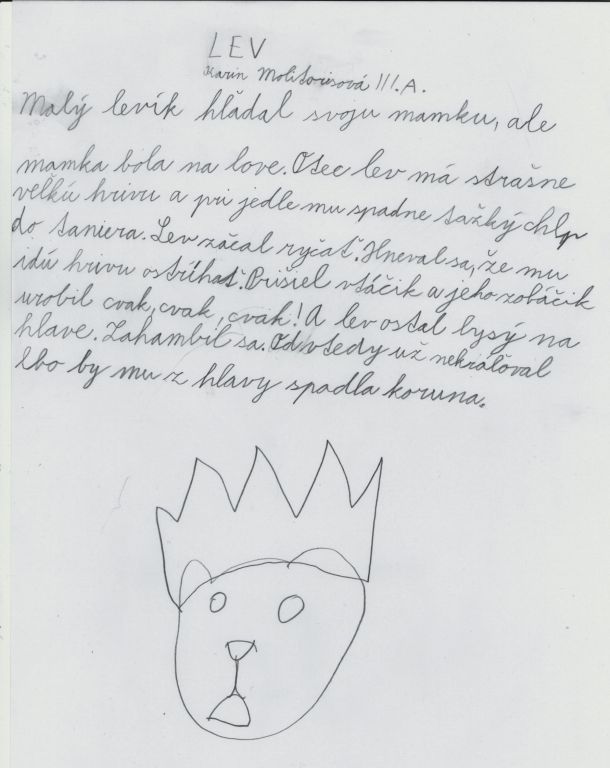 LEV
Karin Molitorisová III.A.
Malý levík hľadal svoju mamku, ale
mamka bola na love. Otec lev má strašne
veľkú hrivu a pri jedle mu spadne ťažký chlp
do taniera. Lev začal ryčať. Hneval sa, že mu
idú hrivu ostrihať. Prišiel vtáčik a jeho zobáčik
urobil cvak, cvak, cvak! A lev ostal lysý na
hlave. Zahambil sa. Odvtedy už nekráľoval
lbo by mu z hlavy spadla koruna.